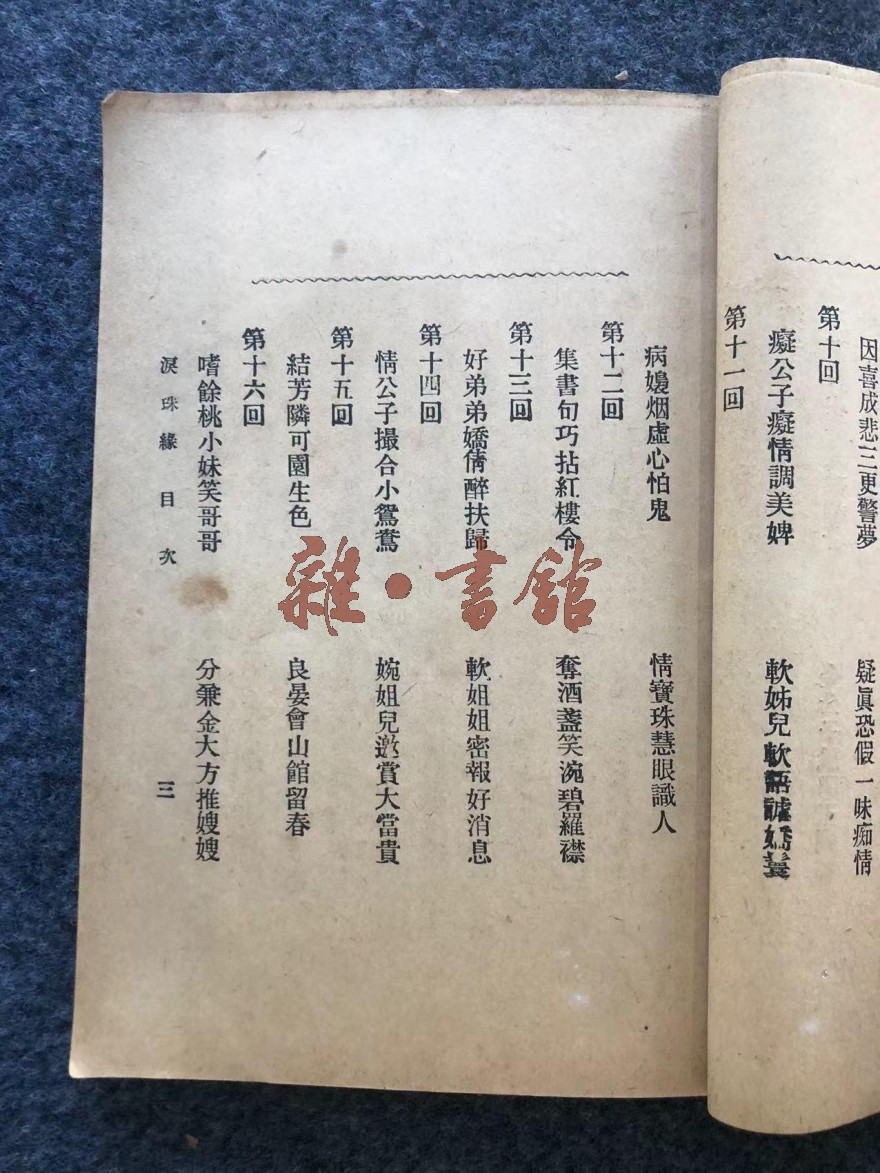 因喜成悲三更警夢　疑眞恐假一味痴情
第十回
癡公子癡情調美婢　軟姊兒軟語謔嬌鬟
第十一回
病嫚烟虛心怕鬼　情寶珠慧眼識人
第十二回
集書句巧拈紅樓令　奪酒盞笑涴碧羅襟
第十三回
好弟弟嬌倩醉扶歸　軟姐姐密報好消息
第十四回
情公子撮合小鴛鴦　婉姐兒邀賞大當貴
第十五回
結芳隣可園生色　良晏會山館留春
第十六回
嗜餘桃小妹笑哥哥　分兼金大方推嫂嫂
淚珠緣　目次　三
雜·書館